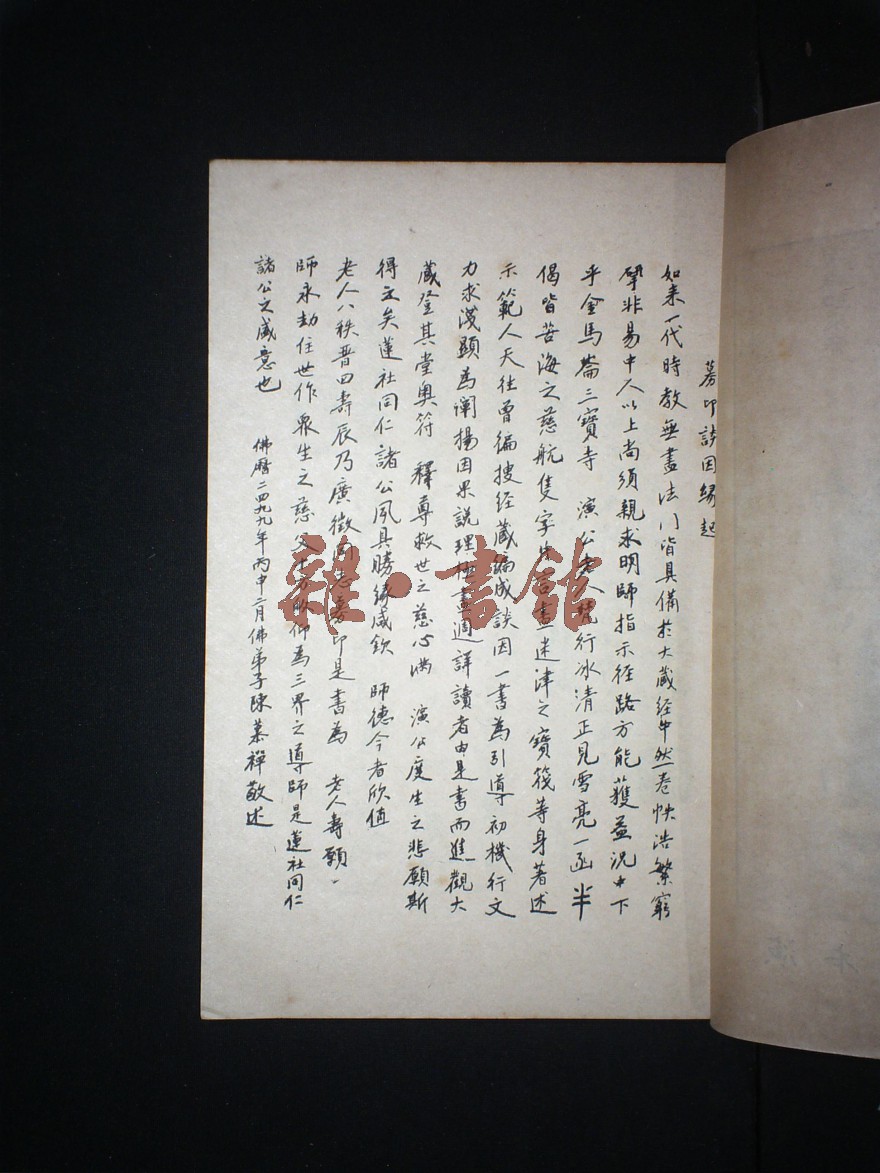 募印談因緣起
如来一代時教無盡法门皆具備於大藏經中然卷帙浩繁窮
擘非易中人以上尚须親求明師指示徑路方能獲益况中下
乎金馬崙三寶寺 演公老人梵行冰清正見雪亮一函半
偈皆苦海之慈航隻字片言盡迷津之寶筏等身著述
示範人天往曾徧搜经藏編成談因一書為引導初機行文
力求淺顯為阐揚因果說理極盡週詳讀者由是書而進觀大
藏登其堂奥符 釋尊救世之慈心满 演公度生之悲願斯
得之矣蓮社同仁諸公夙具勝缘咸欽 師德今者欣值
老人八秩晋四壽辰乃廣徵同志募印是書為 老人壽願
師永劫住世作眾生之慈父十方瞻仰為三界之導師是蓮社同仁
諸公之盛意也 佛曆二四九九年丙申二月佛弟子陳慕禪敬述
雜·書館